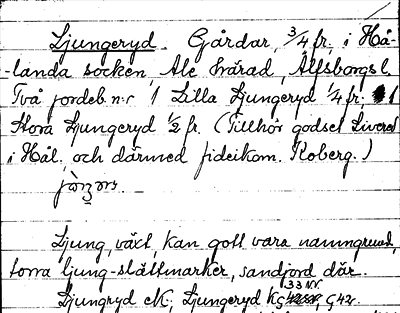 Ljungeryd. Gårdar, 3/4 fr, i Hå-
-landa socken, Ale härad, Älfsborgs l.
Två jordeb. n:r 1 Lilla Ljungeryd 1/4 fr; 1
Stora Ljungeryd 1/2 fr. (Tillhör godset Livered
i Hål. och därmed fideikom. Koberg.)
Ljung, växt, kan gott vara namngrund,
torra ljung-slättmarker, sandjord där.
Ljungryd eK; Ljungeryd